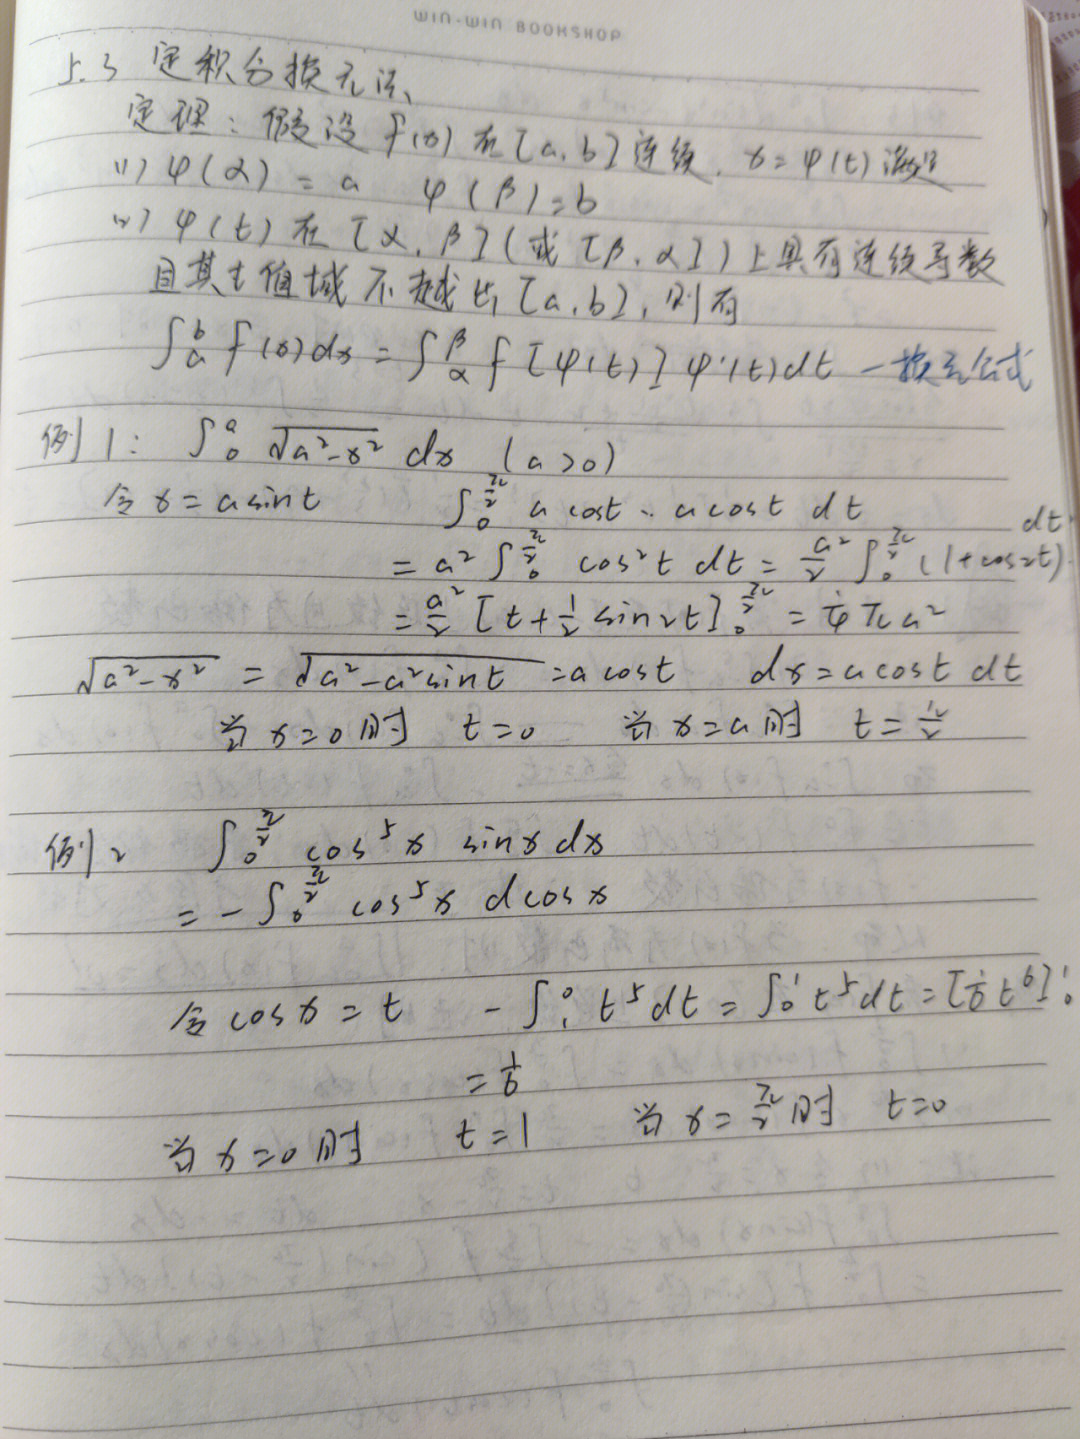 WIN-WIN BOOKSHOP
5.3 定积分换元法
定理：假设 f(x) 在 [a, b] 连续, x = φ(t) 满足
(1) φ(α) = a φ(β) = b
(2) φ(t) 在 [α, β] (或 [β, α]) 上具有连续导数
且其值域不越出 [a, b], 则有
∫_a^b f(x)dx = ∫_α^β f[φ(t)]φ'(t)dt —换元公式
例1: ∫_0^a √(a²-x²) dx (a>0)
令 x = a sint ∫_0^{π/2} a cost · a cost dt
= a² ∫_0^{π/2} cos²t dt = a²/2 ∫_0^{π/2} (1+cos2t) dt
= a²/2 [t + 1/2 sin2t]_0^{π/2} = 1/4 πa²
√(a²-x²) = √(a²-a²sint) = a cost dx = a cost dt
当 x=0 时 t=0 当 x=a 时 t=π/2
例2 ∫_0^{π/2} cos⁵x sinx dx
= -∫_0^{π/2} cos⁵x dcosx
令 cosx = t -∫_1^0 t⁵dt = ∫_0^1 t⁵dt = [1/6 t⁶]_0^1
= 1/6
当 x=0 时 t=1 当 x=π/2 时 t=0